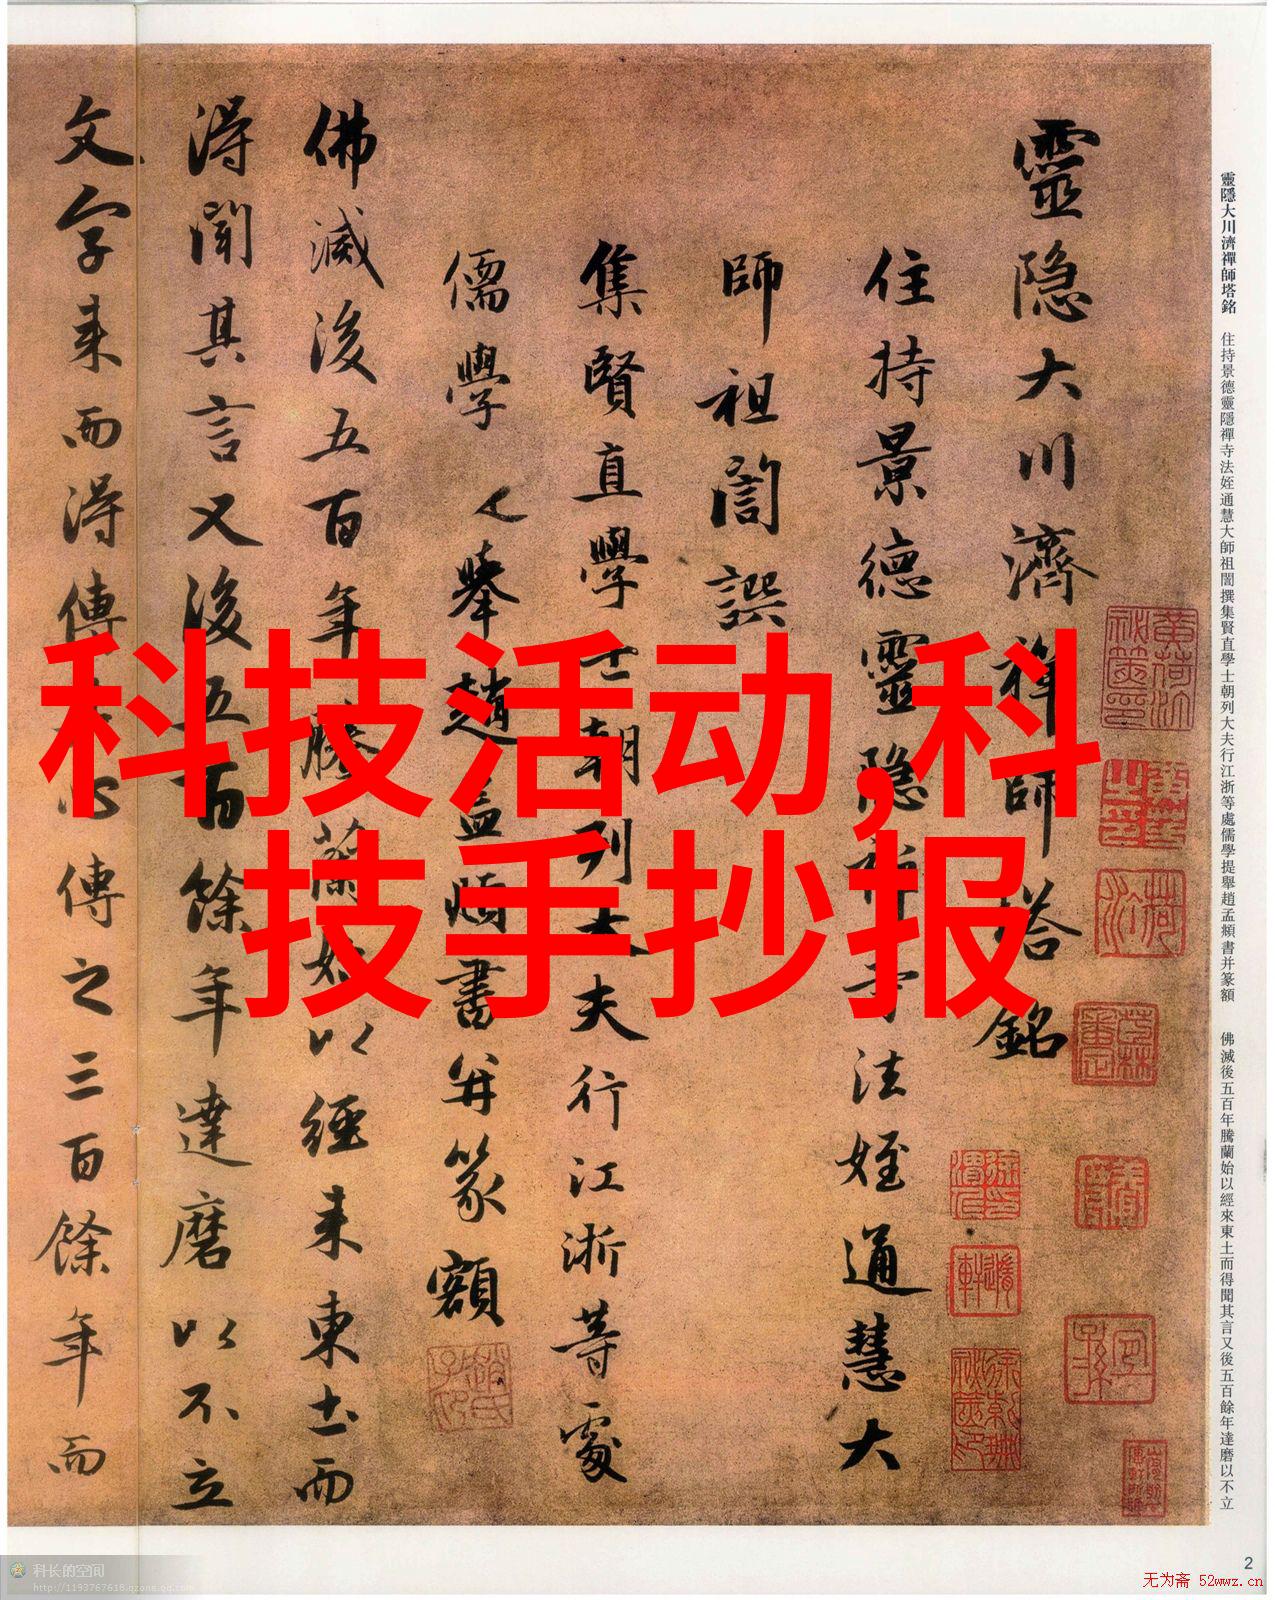 靈隐大川濟禅師塔銘
住持景德靈隐禅寺法姪通慧大
師祖誾譔
集賢直學士朝列大夫行江浙等處
儒學提舉趙孟頫書并篆額
佛滅後五百年騰蘭始以經来東土而
得聞其言又後五百餘年達磨以不立
文字来而得傳之心傳之三百餘年而
靈隱大川濟禪師塔銘 住持景德靈隱禪寺法姪通慧大師祖誾撰集賢直學士朝列大夫行江浙等處儒學提舉趙孟頫書并篆額 佛滅後五百年騰蘭始以經來東土而得聞其言又後五百餘年達磨以不立
科技活动,科
技手抄报
科长的空间
http://1193767618.qzone.qq.com
2
无为斋 52wwz.cn